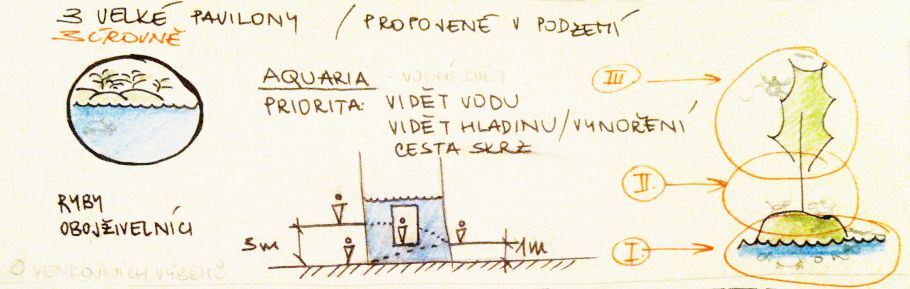 3 VELKÉ PAVILONY / PROPOJENÉ V PODZEMÍ
3 ÚROVNĚ
AQUARIA - VODNÍ SVĚT
PRIORITA: VIDĚT VODU
VIDĚT HLADINU/VYNOŘENÍ
CESTA SKRZ
RYBY
OBOJŽIVELNÍCI
3m
1m
III
II.
I.
VENKOVNÍCH VÝBĚHŮ